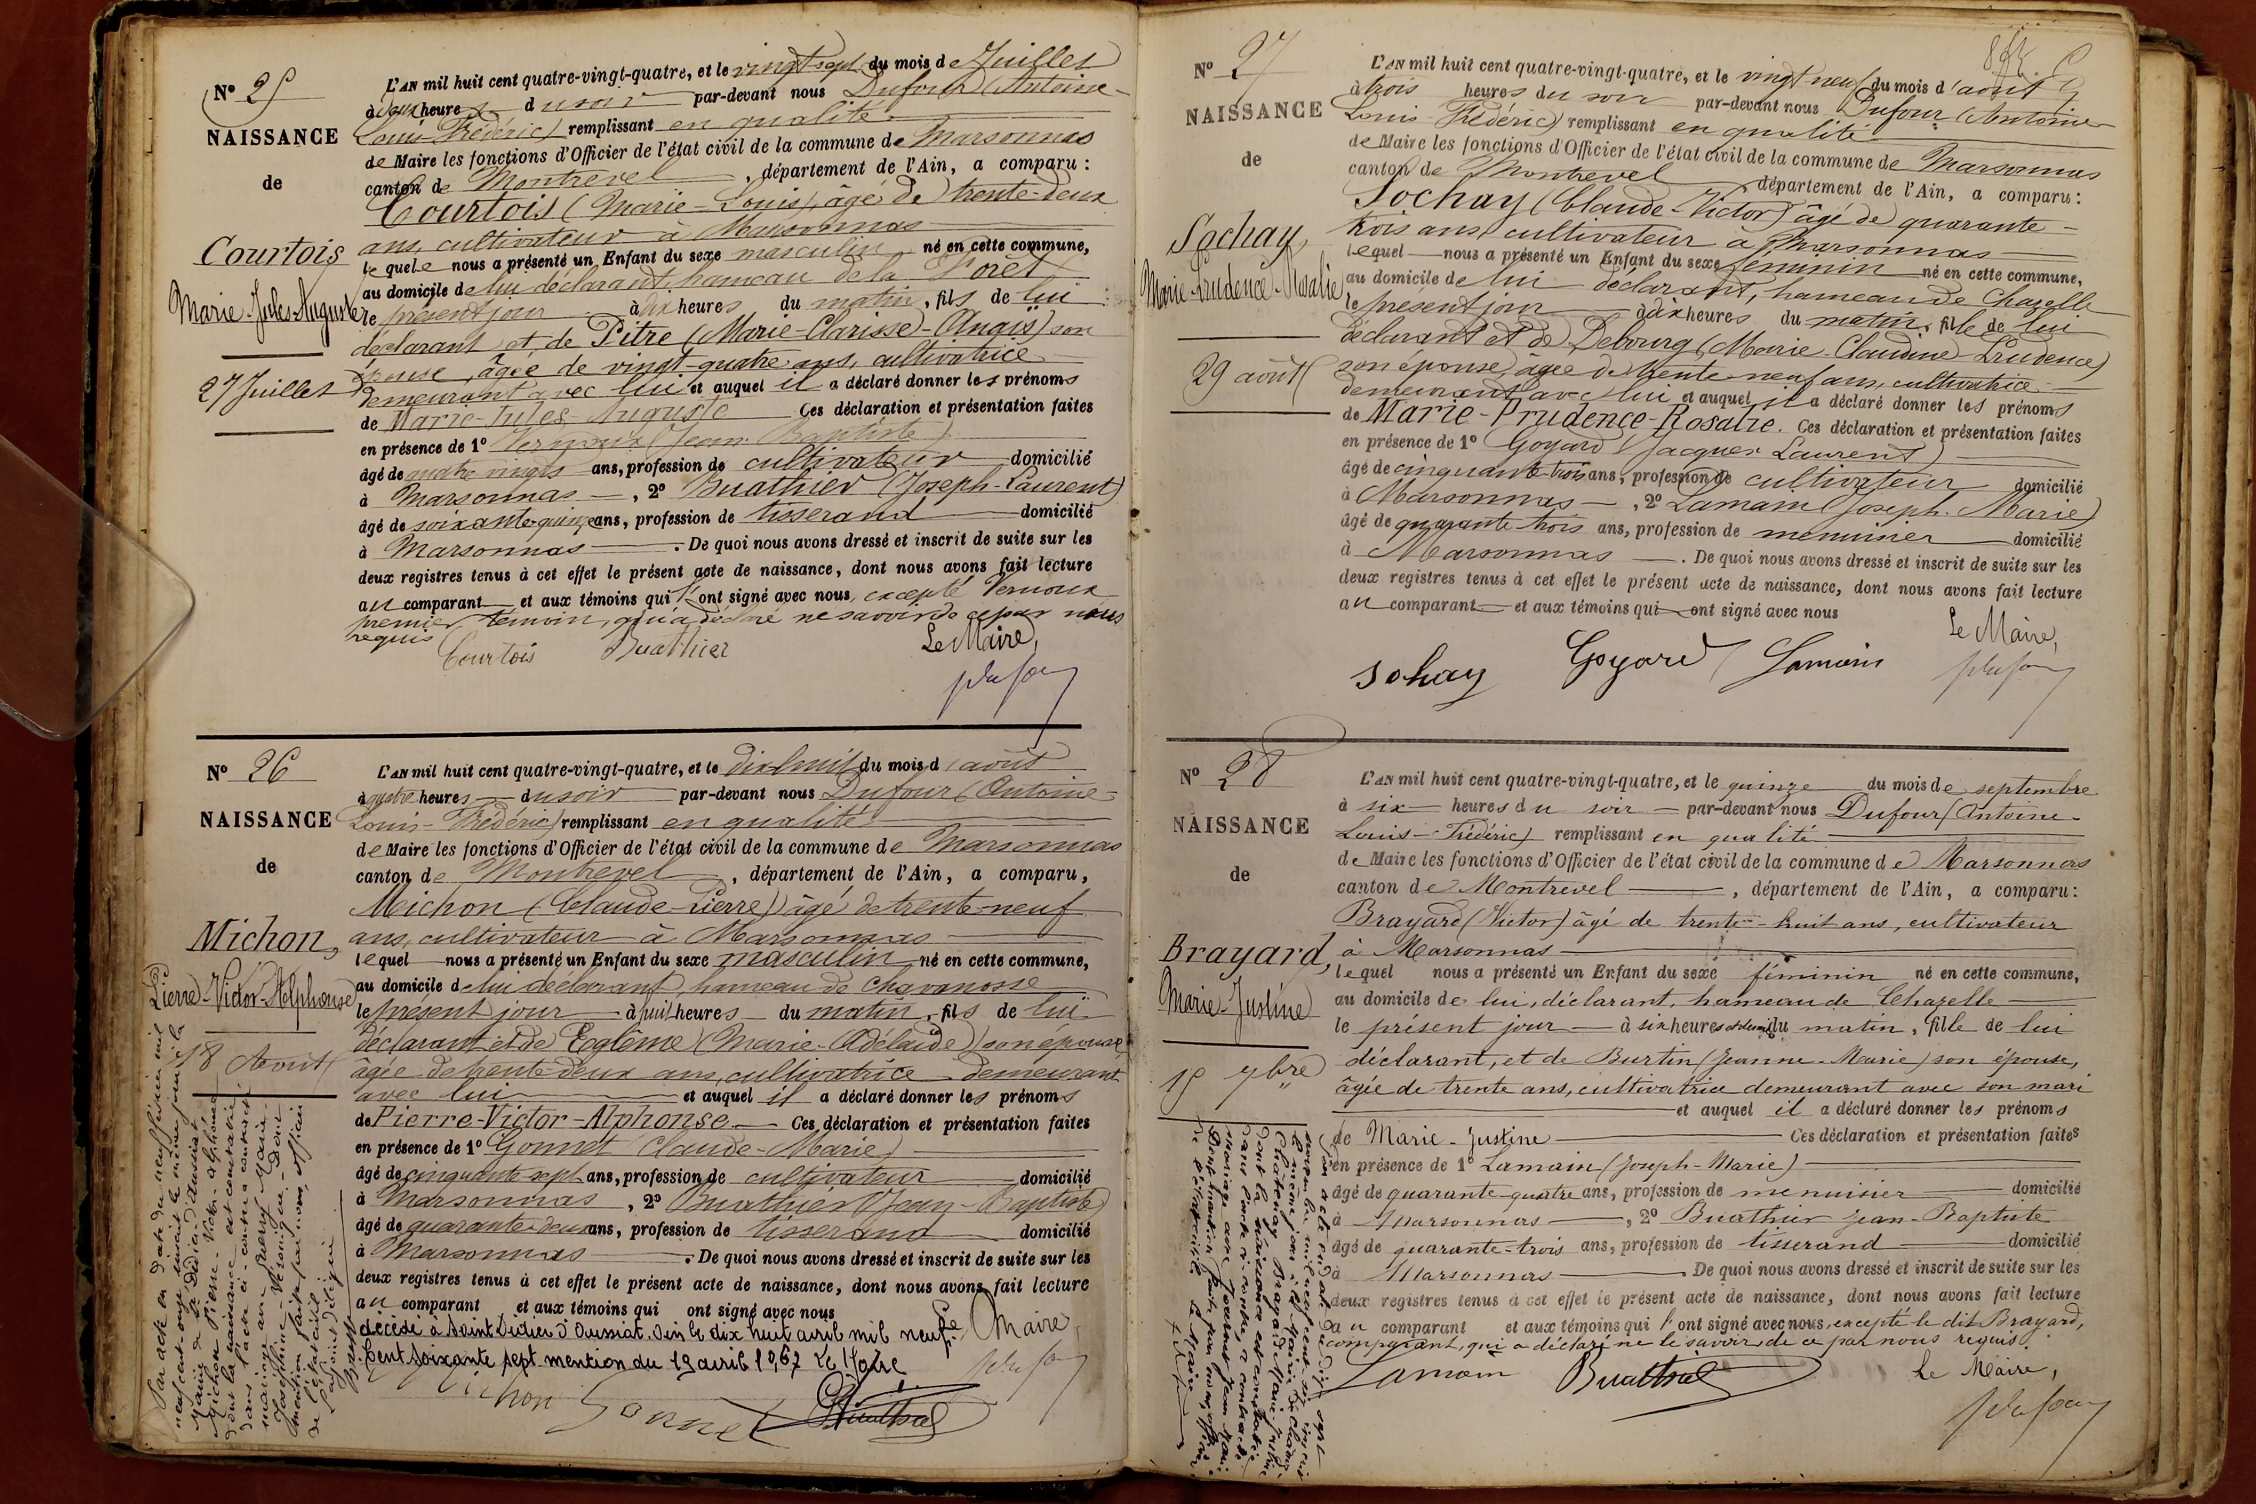 Nº 25
NAISSANCE
de
Courtois
Marie-Jules-Auguste
27 Juillet
L'AN mil huit cent quatre-vingt-quatre, et le vingt sept du mois de Juillet
à deux heures du soir par-devant nous Dufour (Antoine-
Louis-Frédéric) remplissant en qualité
de Maire les fonctions d'Officier de l'état civil de la commune de Marsonnas
canton de Montrevel, département de l'Ain, a comparu :
Courtois (Marie-Louis), âgé de trente-deux
ans, cultivateur à Marsonnas
lequel nous a présenté un Enfant du sexe masculin né en cette commune,
au domicile de lui déclarant, hameau de la Forêt
le présent jour à dix heures du matin, fils de lui
déclarant et de Pitre (Marie-Clarisse-Anaïs) son
épouse, âgée de vingt-quatre ans, cultivatrice
demeurant avec lui et auquel il a déclaré donner les prénoms
de Marie-Jules-Auguste Ces déclaration et présentation faites
en présence de 1º Vernoux (Jean-Baptiste)
âgé de quatre vingts ans, profession de cultivateur domicilié
à Marsonnas, 2º Buathier (Joseph-Laurent)
âgé de soixante-quinze ans, profession de tisserand domicilié
à Marsonnas. De quoi nous avons dressé et inscrit de suite sur les
deux registres tenus à cet effet le présent acte de naissance, dont nous avons fait lecture
au comparant et aux témoins qui l'ont signé avec nous, excepté Vernoux
premier témoin, qui a déclaré ne savoir de ce par nous
requis
Courtois Buathier Le Maire,
Dufour
Nº 26
NAISSANCE
de
Michon,
Pierre-Victor-Alphonse
18 Août
L'AN mil huit cent quatre-vingt-quatre, et le dix-huit du mois d'août
à quatre heures du soir par-devant nous Dufour (Antoine-
Louis-Frédéric) remplissant en qualité
de Maire les fonctions d'Officier de l'état civil de la commune de Marsonnas
canton de Montrevel, département de l'Ain, a comparu,
Michon (Claude-Pierre) âgé de trente-neuf
ans, cultivateur à Marsonnas
lequel nous a présenté un Enfant du sexe masculin né en cette commune,
au domicile de lui déclarant, hameau de Chavanosse
le présent jour à huit heures du matin, fils de lui
déclarant et de Ecoghème (Marie-Adélaïde) son épouse
âgée de trente-deux ans, cultivatrice demeurant
avec lui et auquel il a déclaré donner les prénoms
de Pierre-Victor-Alphonse. Ces déclaration et présentation faites
en présence de 1º Gonnet (Claude-Marie)
âgé de cinquante sept ans, profession de cultivateur domicilié
à Marsonnas, 2º Buathier (Jean-Baptiste)
âgé de quarante-deux ans, profession de tisserand domicilié
à Marsonnas. De quoi nous avons dressé et inscrit de suite sur les
deux registres tenus à cet effet le présent acte de naissance, dont nous avons fait lecture
au comparant et aux témoins qui ont signé avec nous
Le Maire,
décédé à Saint Didier d'Aussiat, Ain le dix huit avril mil neuf
Cent soixante sept mention du 19 avril 1967 Le Maire
Michon Gonnet Buathier Dufour
Par acte en date du neuf février mil
neuf cent onze inscrit le même jour à la
Mairie de St Didier d'Aussiat
Michon Pierre-Victor-Alphonse
dont la naissance est constatée
dans l'acte ci-contre a contracté
mariage avec Guerry Marie-
Josephine-Véronique. Dont
mention faite par nous, officier
de l'état civil
L'adjoint délégué
Nº 27
NAISSANCE
de
Sochay,
Marie-Prudence-Rosalie
29 août
L'AN mil huit cent quatre-vingt-quatre, et le vingt neuf du mois d'août
à trois heures du soir par-devant nous Dufour (Antoine
Louis-Frédéric) remplissant en qualité
de Maire les fonctions d'Officier de l'état civil de la commune de Marsonnas
canton de Montrevel département de l'Ain, a comparu :
Sochay (Claude-Victor) âgé de quarante-
trois ans, cultivateur à Marsonnas
lequel nous a présenté un Enfant du sexe féminin né en cette commune,
au domicile de lui déclarant, hameau de Chazelle
le présent jour à dix heures du matin, fille de lui
déclarant et de Debourg (Marie-Claudine-Prudence)
son épouse, âgée de trente-neuf ans, cultivatrice
demeurant avec lui et auquel il a déclaré donner les prénoms
de Marie-Prudence-Rosalie. Ces déclaration et présentation faites
en présence de 1º Goyard (Jacques Laurent)
âgé de cinquante-trois ans, profession de cultivateur domicilié
à Marsonnas, 2º Lamain (Joseph-Marie)
âgé de quarante-trois ans, profession de menuisier domicilié
à Marsonnas. De quoi nous avons dressé et inscrit de suite sur les
deux registres tenus à cet effet le présent acte de naissance, dont nous avons fait lecture
au comparant et aux témoins qui ont signé avec nous
Le Maire,
Sohay Goyard Lamain Dufour
Nº 28
NAISSANCE
de
Brayard,
Marie-Justine
15 7bre
L'AN mil huit cent quatre-vingt-quatre, et le quinze du mois de septembre
à six heures du soir par-devant nous Dufour (Antoine-
Louis-Frédéric) remplissant en qualité
de Maire les fonctions d'Officier de l'état civil de la commune de Marsonnas
canton de Montrevel, département de l'Ain, a comparu :
Brayard (Victor) âgé de trente-huit ans, cultivateur
à Marsonnas
lequel nous a présenté un Enfant du sexe féminin né en cette commune,
au domicile de lui, déclarant, hameau de Chazelle
le présent jour à six heures et demi du matin, fille de lui
déclarant, et de Burtin (Jeanne-Marie) son épouse,
âgée de trente ans, cultivatrice demeurant avec son mari
et auquel il a déclaré donner les prénoms
de Marie-Justine Ces déclaration et présentation faites
en présence de 1º Lamain (Joseph-Marie)
âgé de quarante-quatre ans, profession de menuisier domicilié
à Marsonnas, 2º Buathier Jean-Baptiste
âgé de quarante-trois ans, profession de tisserand domicilié
à Marsonnas. De quoi nous avons dressé et inscrit de suite sur les
deux registres tenus à cet effet le présent acte de naissance, dont nous avons fait lecture
au comparant et aux témoins qui l'ont signé avec nous, excepté le dit Brayard,
comparant, qui a déclaré ne le savoir de ce par nous requis.
Lamain Buathier Le Maire,
Dufour